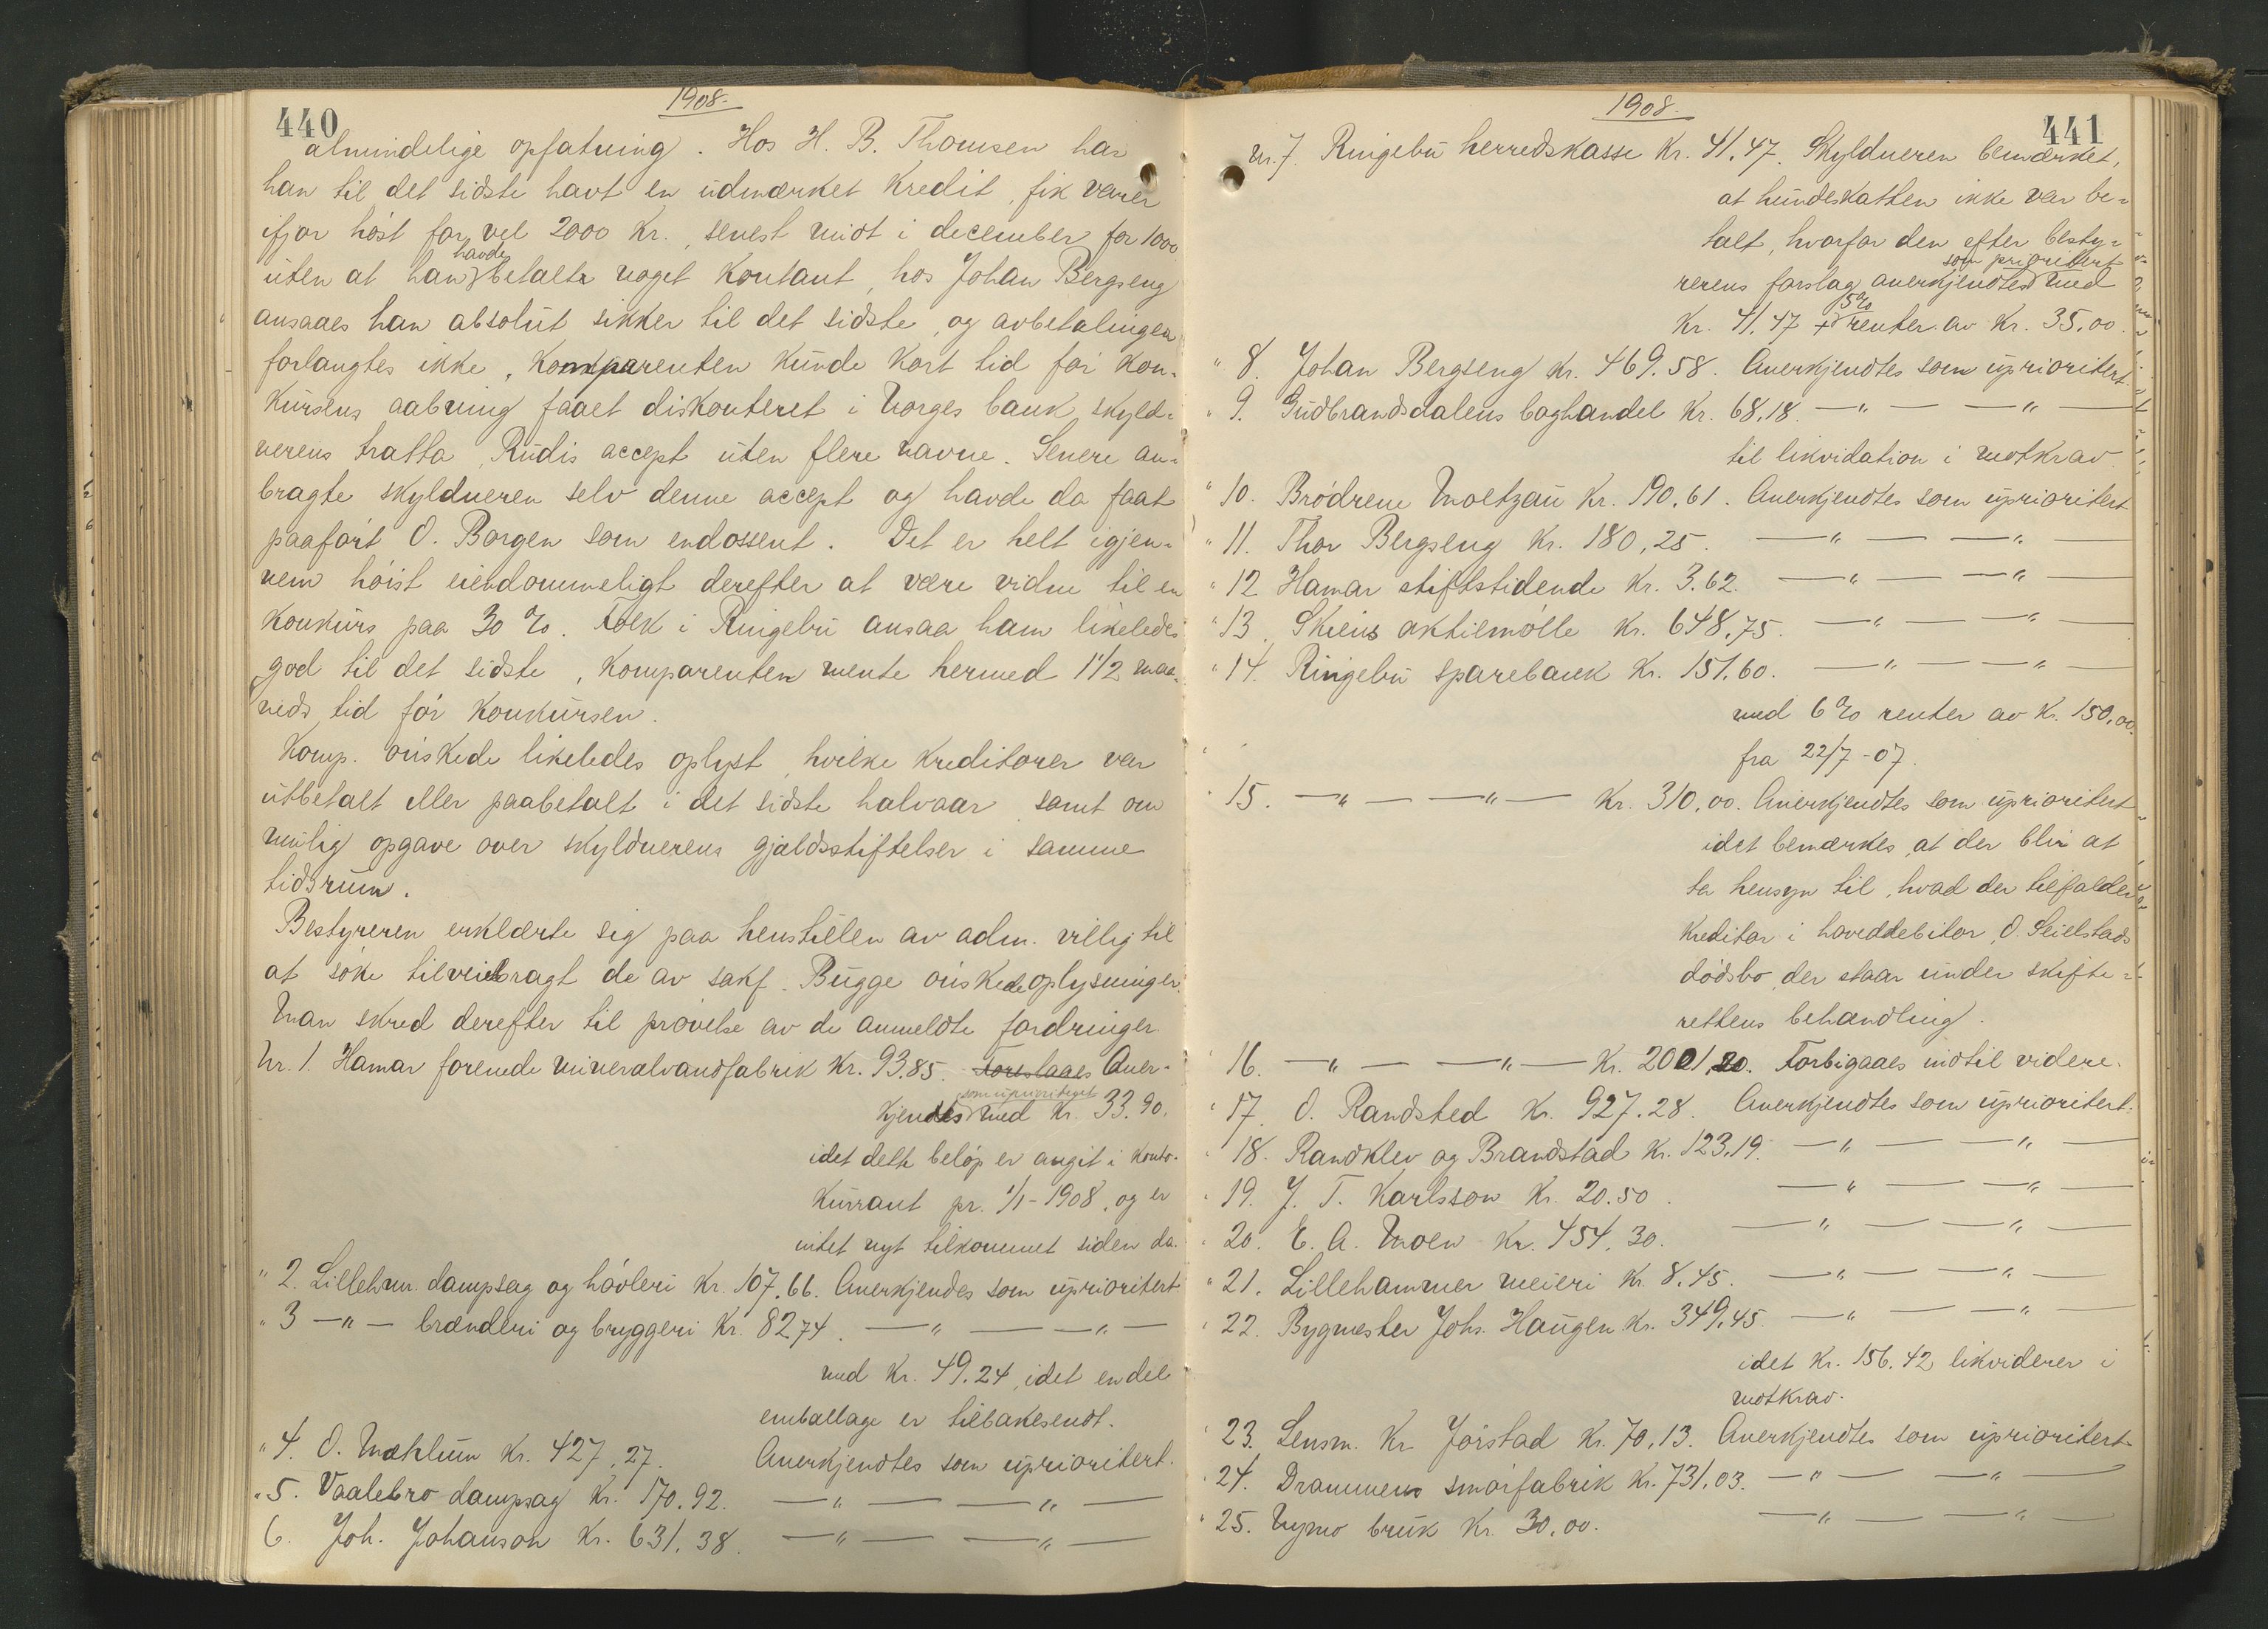 440
1908.
almindelige opfatning. Hos H. B. Thomsen har
han til det sidste havt en udmærket kredit, fik varer
ifjor høst for vel 2000 kr., senest midt i december for 1000
havde
uten at han betalt noget kontant, hos Johan Bergseng
ansaaes han absolut sikker til det sidste, og avbetalingen
forlangtes ikke, komparenten kunde kort tid før kon-
kursens aabning faaet diskonteret i Norges bank skyld-
nerens tratta, Rudis accept uten flere navne. Senere an-
bragte skyldneren selv denne accept og havde da faat
paaført O. Borgen som endossent. Det er helt igjen-
nem høist eiendommeligt derefter at være vidne til en
konkurs paa 30 %. Folk i Ringebu ansaa ham likeledes
god til det sidste, komparenten mente hermed 1 1/2 maa-
neds tid før konkursen.
Komp. ønskede likeledes oplyst, hvilke kreditorer var
utbetalt eller paabetalt i det sidste halvaar samt om
mulig opgave over skyldnerens gjældsstiftelser i samme
tidsrum.
Bestyreren erklærte sig paa henstillen av adm. villig til
at søke tilveiebragt de av sakf. Bugge ønskede oplysninger.
Man skred derefter til prøvelse av de anmeldte fordringer.
Nr. 1. Hamar forenede mineralvandfabrik Kr. 93.85. Foreslaaes Aner-
som uprioritert
kjendes med Kr. 33.90.
idet dette beløp er angit i konto-
kurrant pr. 1/1-1908, og er
intet nyt tilkommet siden da.
" 2. Lillehm. dampsag og høvleri Kr. 107.66. Anerkjendes som uprioritert
" 3 —"— brænderi og bryggeri Kr. 82 74. —"— —"—
med Kr. 49.24, idet endel
emballage er tilbakesendt.
" 4. O. Mæhlum Kr. 427,27. Anerkjendtes som uprioritert.
" 5. Vaalebro dampsag Kr. 170.92. —"— —"—
6. Joh. Johanson Kr. 631.38. —"— —"—
1908.
441
Nr. 7. Ringebu herredskasse Kr. 41.47. Skyldneren bemærket,
at hundeskatten ikke var be-
talt, hvorfor den efter besty-
som prioritert
rerens forslag anerkjendtes med
5%
Kr. 41.47 + renter av Kr. 35.00.
" 8. Johan Bergseng Kr. 469.58. Anerkjendtes som uprioritert.
" 9. Gudbrandsdalens boghandel Kr. 68.18. —"— —"—
til likvidation i motkrav.
" 10. Brødrene Moltzau Kr. 190.61. Anerkjendtes som uprioritert
" 11. Thor Bergseng Kr. 180,25. —"— —"—
" 12 Hamar stiftstidende Kr. 3.62. —"— —"—
" 13. Skiens aktiemølle Kr. 648,75. —"— —"—
" 14. Ringebu sparebank Kr. 151.60. —"— —"—
med 6% renter av Kr. 150.00.
fra 22/7-07.
" 15. —"— —"— Kr. 310,00. Anerkjendtes som uprioritert
idet bemærkes, at der blir at
ta hensyn til, hvad der tilfalder
kreditor i hoveddebitor, O. Seielstads
dødsbo, der staar under skifte-
rettens behandling.
" 16. —"— —"— Kr. 2001,20. Forbigaaes indtil videre.
" 17. O. Randsted Kr. 927.28. Anerkjendtes som uprioritert.
" 18. Randklev og Brandstad Kr. 123.19. —"— —"—
" 19. J. T. Karlsson Kr. 20.50. —"— —"—
" 20. E. A. Moen Kr. 454.30. —"— —"—
" 21. Lillehammer meieri Kr. 8.45. —"— —"—
" 22. Bygmester Johs. Haugen Kr. 349.45. —"— —"—
idet Kr. 156.42 likviderer i
motkrav.
" 23. Lensm. Kr. Jørstad Kr. 70,13. Anerkjendtes som uprioritert.
" 24. Drammens smørfabrik Kr. 731.03. —"— —"—
" 25. Nymo bruk Kr. 30.00. —"— —"—